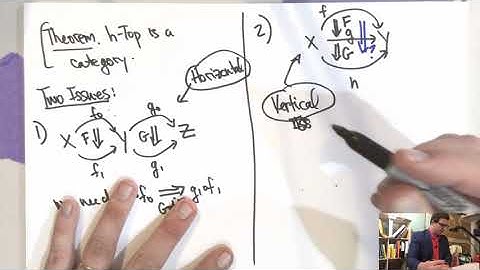 Theorem. h-Top is a
category.
Two Issues:
Horizontal
1)
f₀ g₀
X F⇓ Y G⇓ Z
f₁ g₁
need f₀ ⟹ g₁∘f₁
2)
f
F
X g Y
G ?
h
Vertical